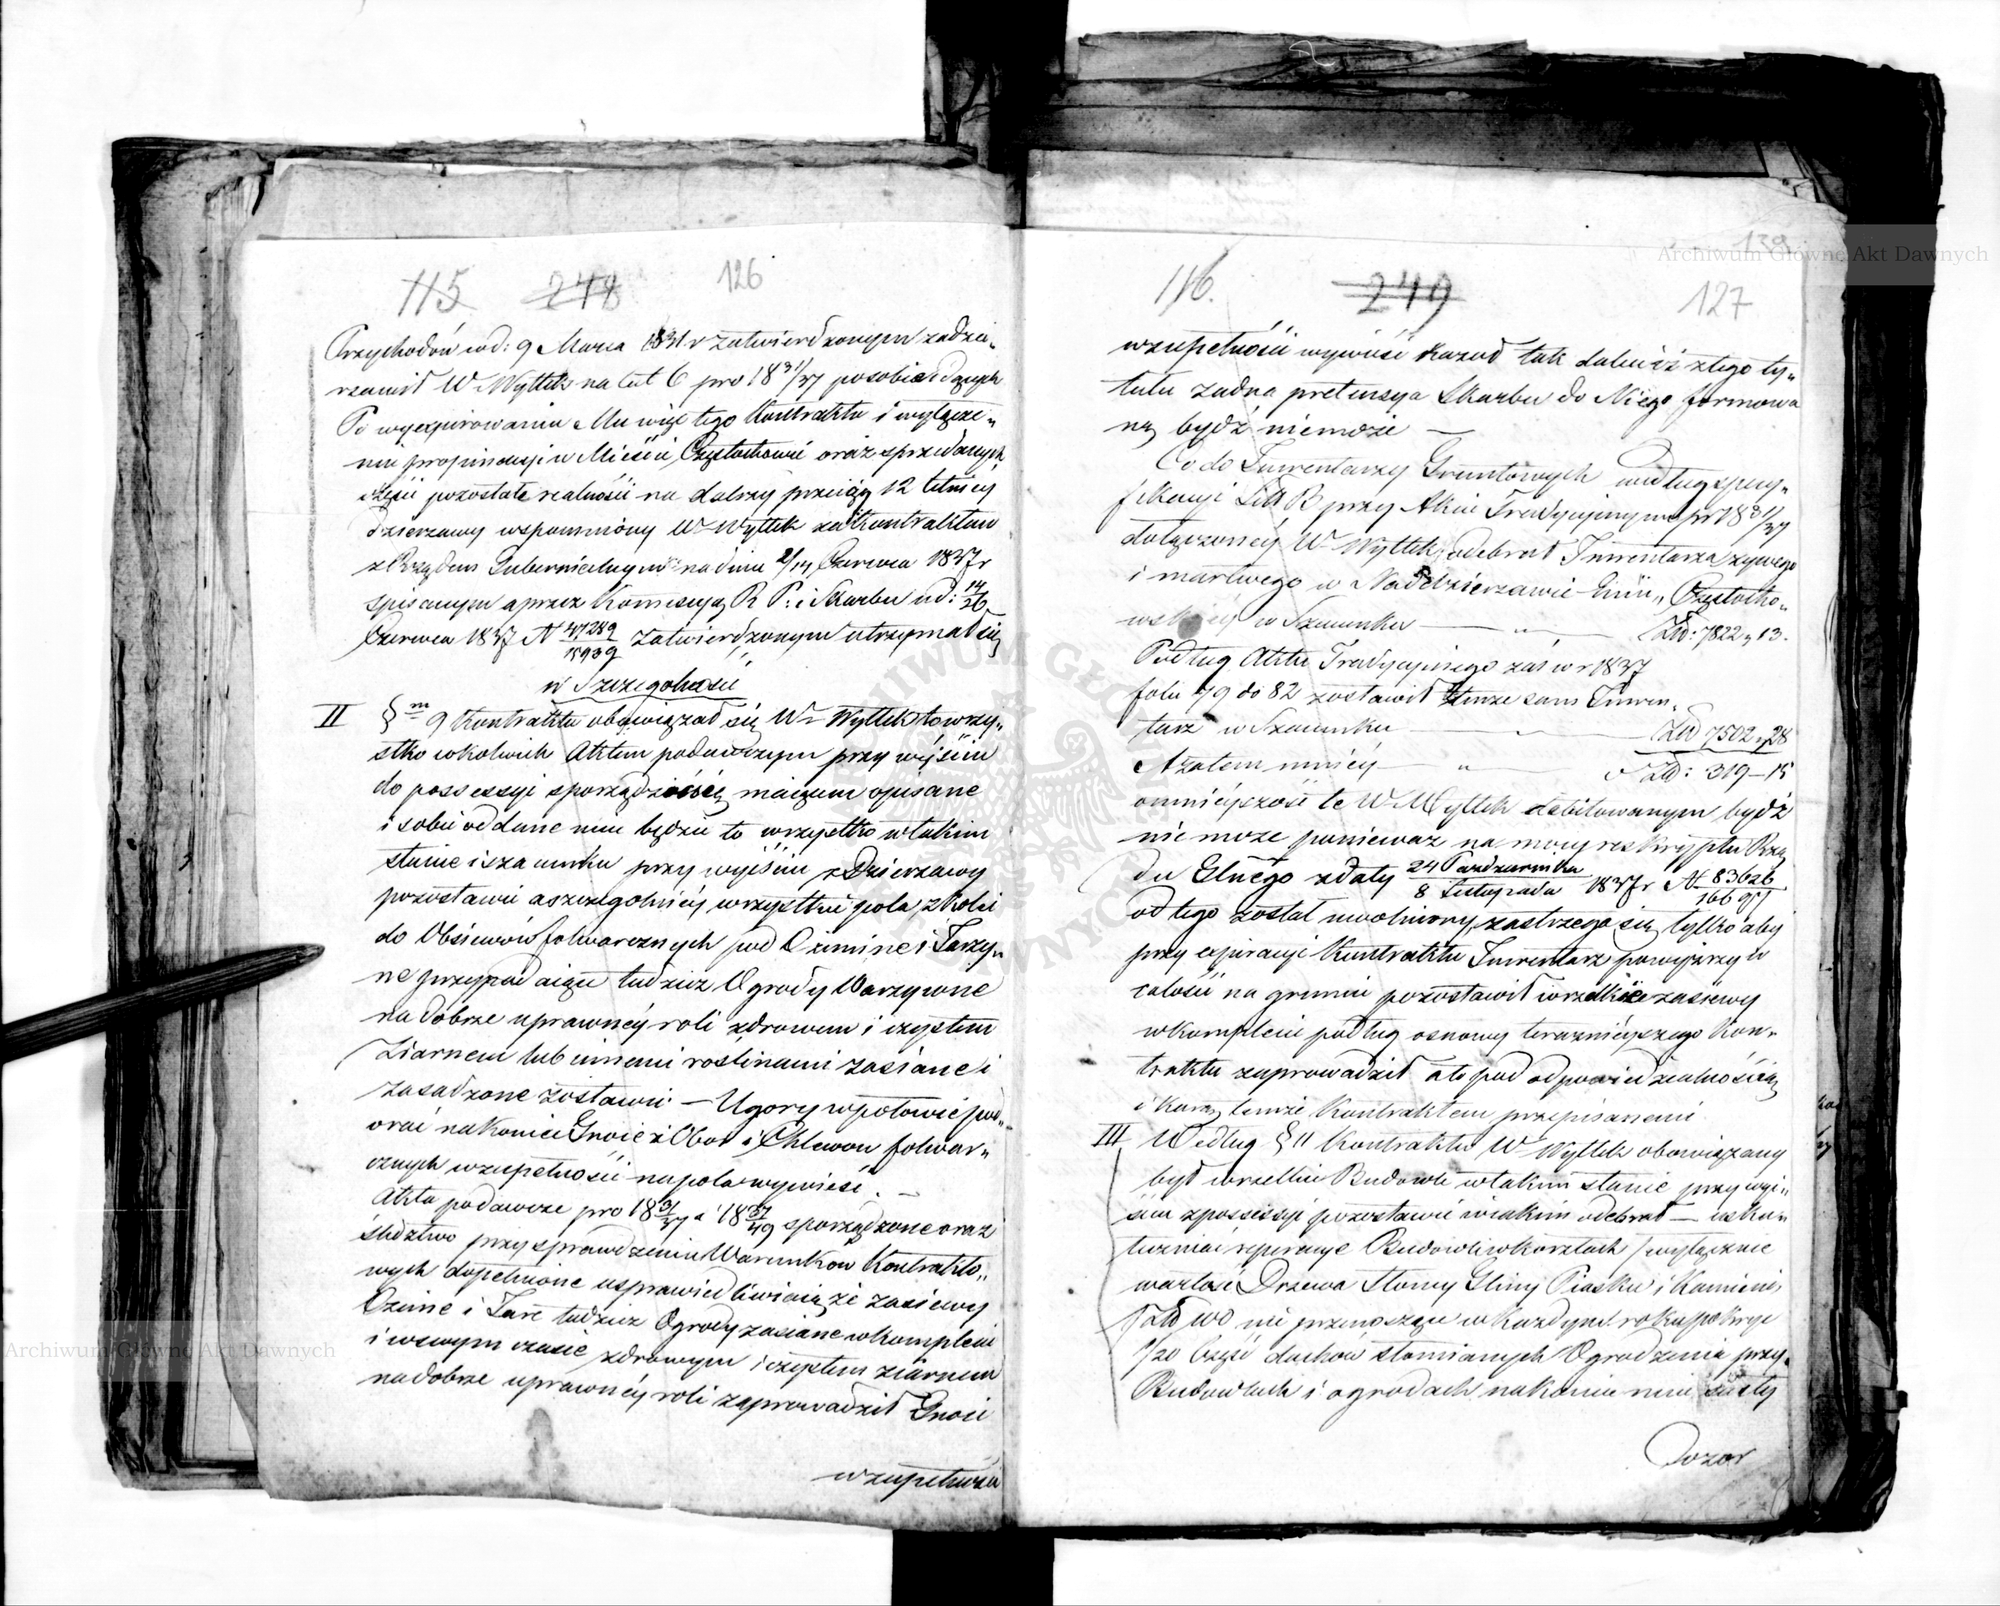 115 248 126
Przychodów od: 9 Marca 1831 r zatwierdzonym zadzier
rzawił W Wyttek na lat 6 pro 18 31/37 po sobie idących
Po wyexpirowaniu Mu więc tego Kontraktu i wyłącze„
niu propinacyi w Mieście Częstochowie oraz sprzedanych
części pozostałe realności na dalszy przeciąg 12 letniey
dzierzawy wspomniony W Wyttek za Kontraktem
z Rządem Gubernialnym na dniu 2/14 Czerwca 1837 r
spisanym a przez Komissyą R P: i Skarbu d: 14/26
Czerwca 1837 N 47289/15939 zatwierdzonym utrzymał się
w Szczególności
II §m 9 Kontraktu obowiązał się W Wyttek to wszy„
stko cokolwiek Aktem podawczym przy wejściu
do possessyi sporządzić się maiącem opisane
i sobie oddane mieć będzie to wszystko w takim
stanie i szacunku przy wyjściu z Dzierzawy
pozostawić a szczególniey wszystkie pola z kolei
do Obsiewów folwarcznych pod Oziminę i Jarzy„
nę przypadaiące tudzież Ogrody Warzywne
na dobrze uprawney roli zdrowem i czystem
Ziarnem lub innemi roślinami zasiane i
zasadzone zostawić – Ugory w połowie pod„
orać nakoniec Gnoie z Obor i Chlewow folwar„
cznych w zupełności na pola wywieść. –
Akta podawcze pro 18 31/37 a 18 37/49 sporządzone oraz
śledztwo przy sprawdzeniu Warunków Kontrakto„
wych dopełnione usprawiedliwiaią że zasiewy
Ozime i Jare tudzież Ogrody zasiane w komplecie
i w swym czasie zdrowym i czystem ziarnem
na dobrze uprawney roli zaprowadził Gnoie
w zupełności
116. 249 127
139
w zupełności wywieść kazał tak dalece iż z tego ty„
tułu żadna pretensya Skarbu do Niego formowa
ną bydź niemoże —
Co do Inwentarzy Gruntowych według specy„
fikacyi Litt B przy Akcie Tradycyinym pr 18 31/37
dołączoney W Wyttek odebrał Inwentarza żywego
i martwego w Naddzierzawie Częstocho„
wskiey w Szacunku — „ — Złp: 7822 „ 13.
Podług Aktu Tradycyinego zaś w r 1837
folio 79 do 82 zostawił tenże sam Inwen„
tarz w Szacunku — „ — Złp 7502 „ 28
A zatem mniey — „ — Złp: 319–15
o mnieyszość te W Wyttek debitowanym bydź
nie może ponieważ na mocy reskryptu Rzą
du Glnego z daty 24 Pazdziernika/8 Listopada 1837 r N 83626/16697
od tego został uwolniony, zastrzega się tylko aby
przy expiracyi Kontraktu Inwentarz powyższy w
całości na gruncie pozostawił i wszelkie zasiewy
w komplecie podług osnowy teraznieyszego Kon„
traktu zaprowadził a to pod odpowiedzialnością
i karą tymże Kontraktem przepisanemi
III Według § 11 Kontraktu W Wyttek obowiązany
był wszelkie Budowle w takim stanie przy wyi„
ściu z possessyi pozostawić w iakim odebrał — usku„
teczniać reperacye Budowli w kosztach /wyłącznie
wartość Drzewa Słomy Gliny Piasku i Kamieni,
nie przenoszące w każdym roku pokryć
1/20 Część dachów słomianych Ogrodzenia przy„
Budowlach i ogrodach nakoniec mieć ścisły
Dozor
Archiwum Główne Akt Dawnych
Archiwum Główne Akt Dawnych